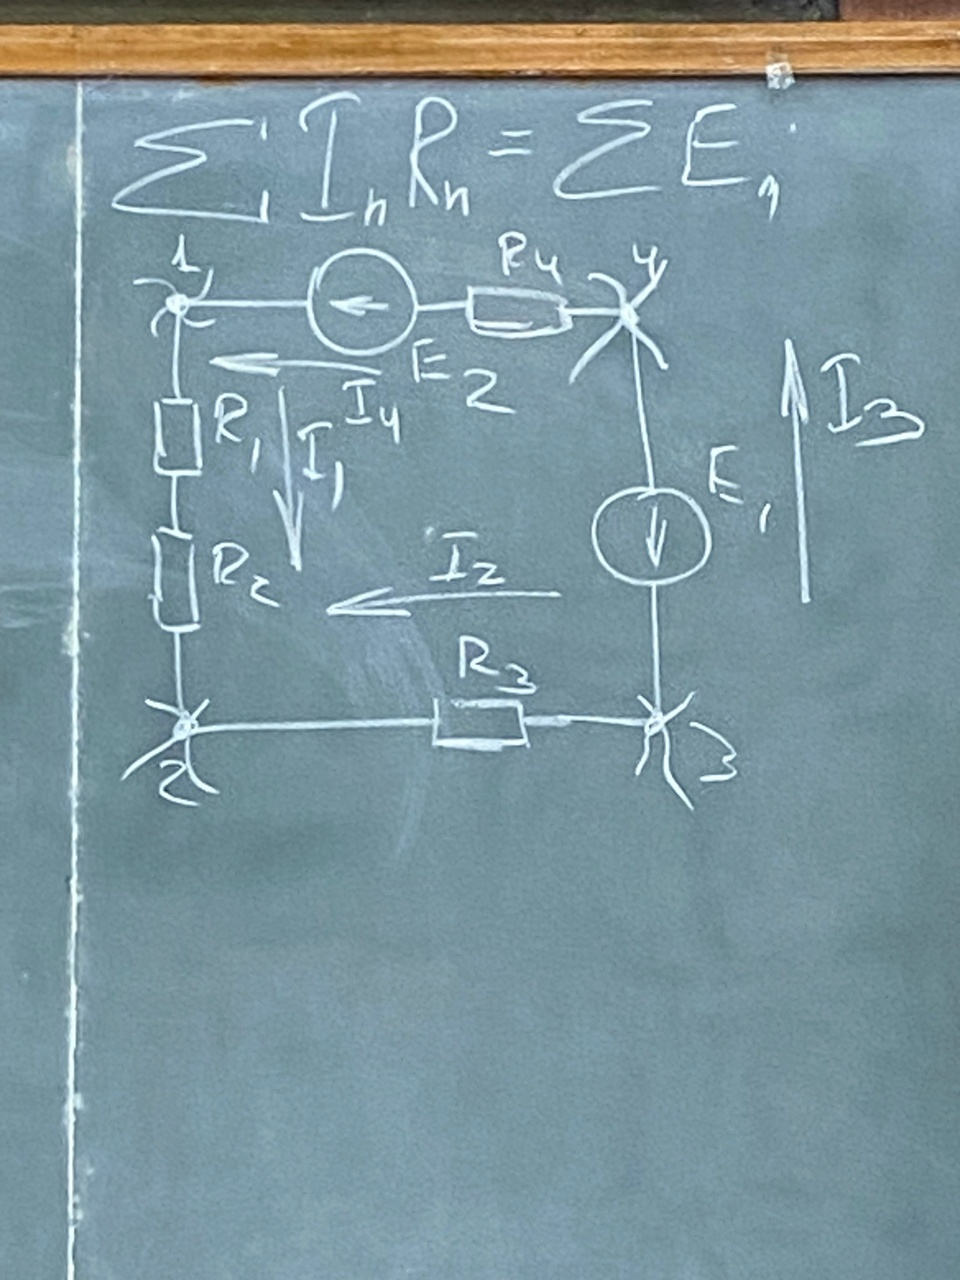 Σ I_n R_n = Σ E_n
1
R4
4
E2
I4
R1
I1
I3
E1
R2
I2
R3
2
3